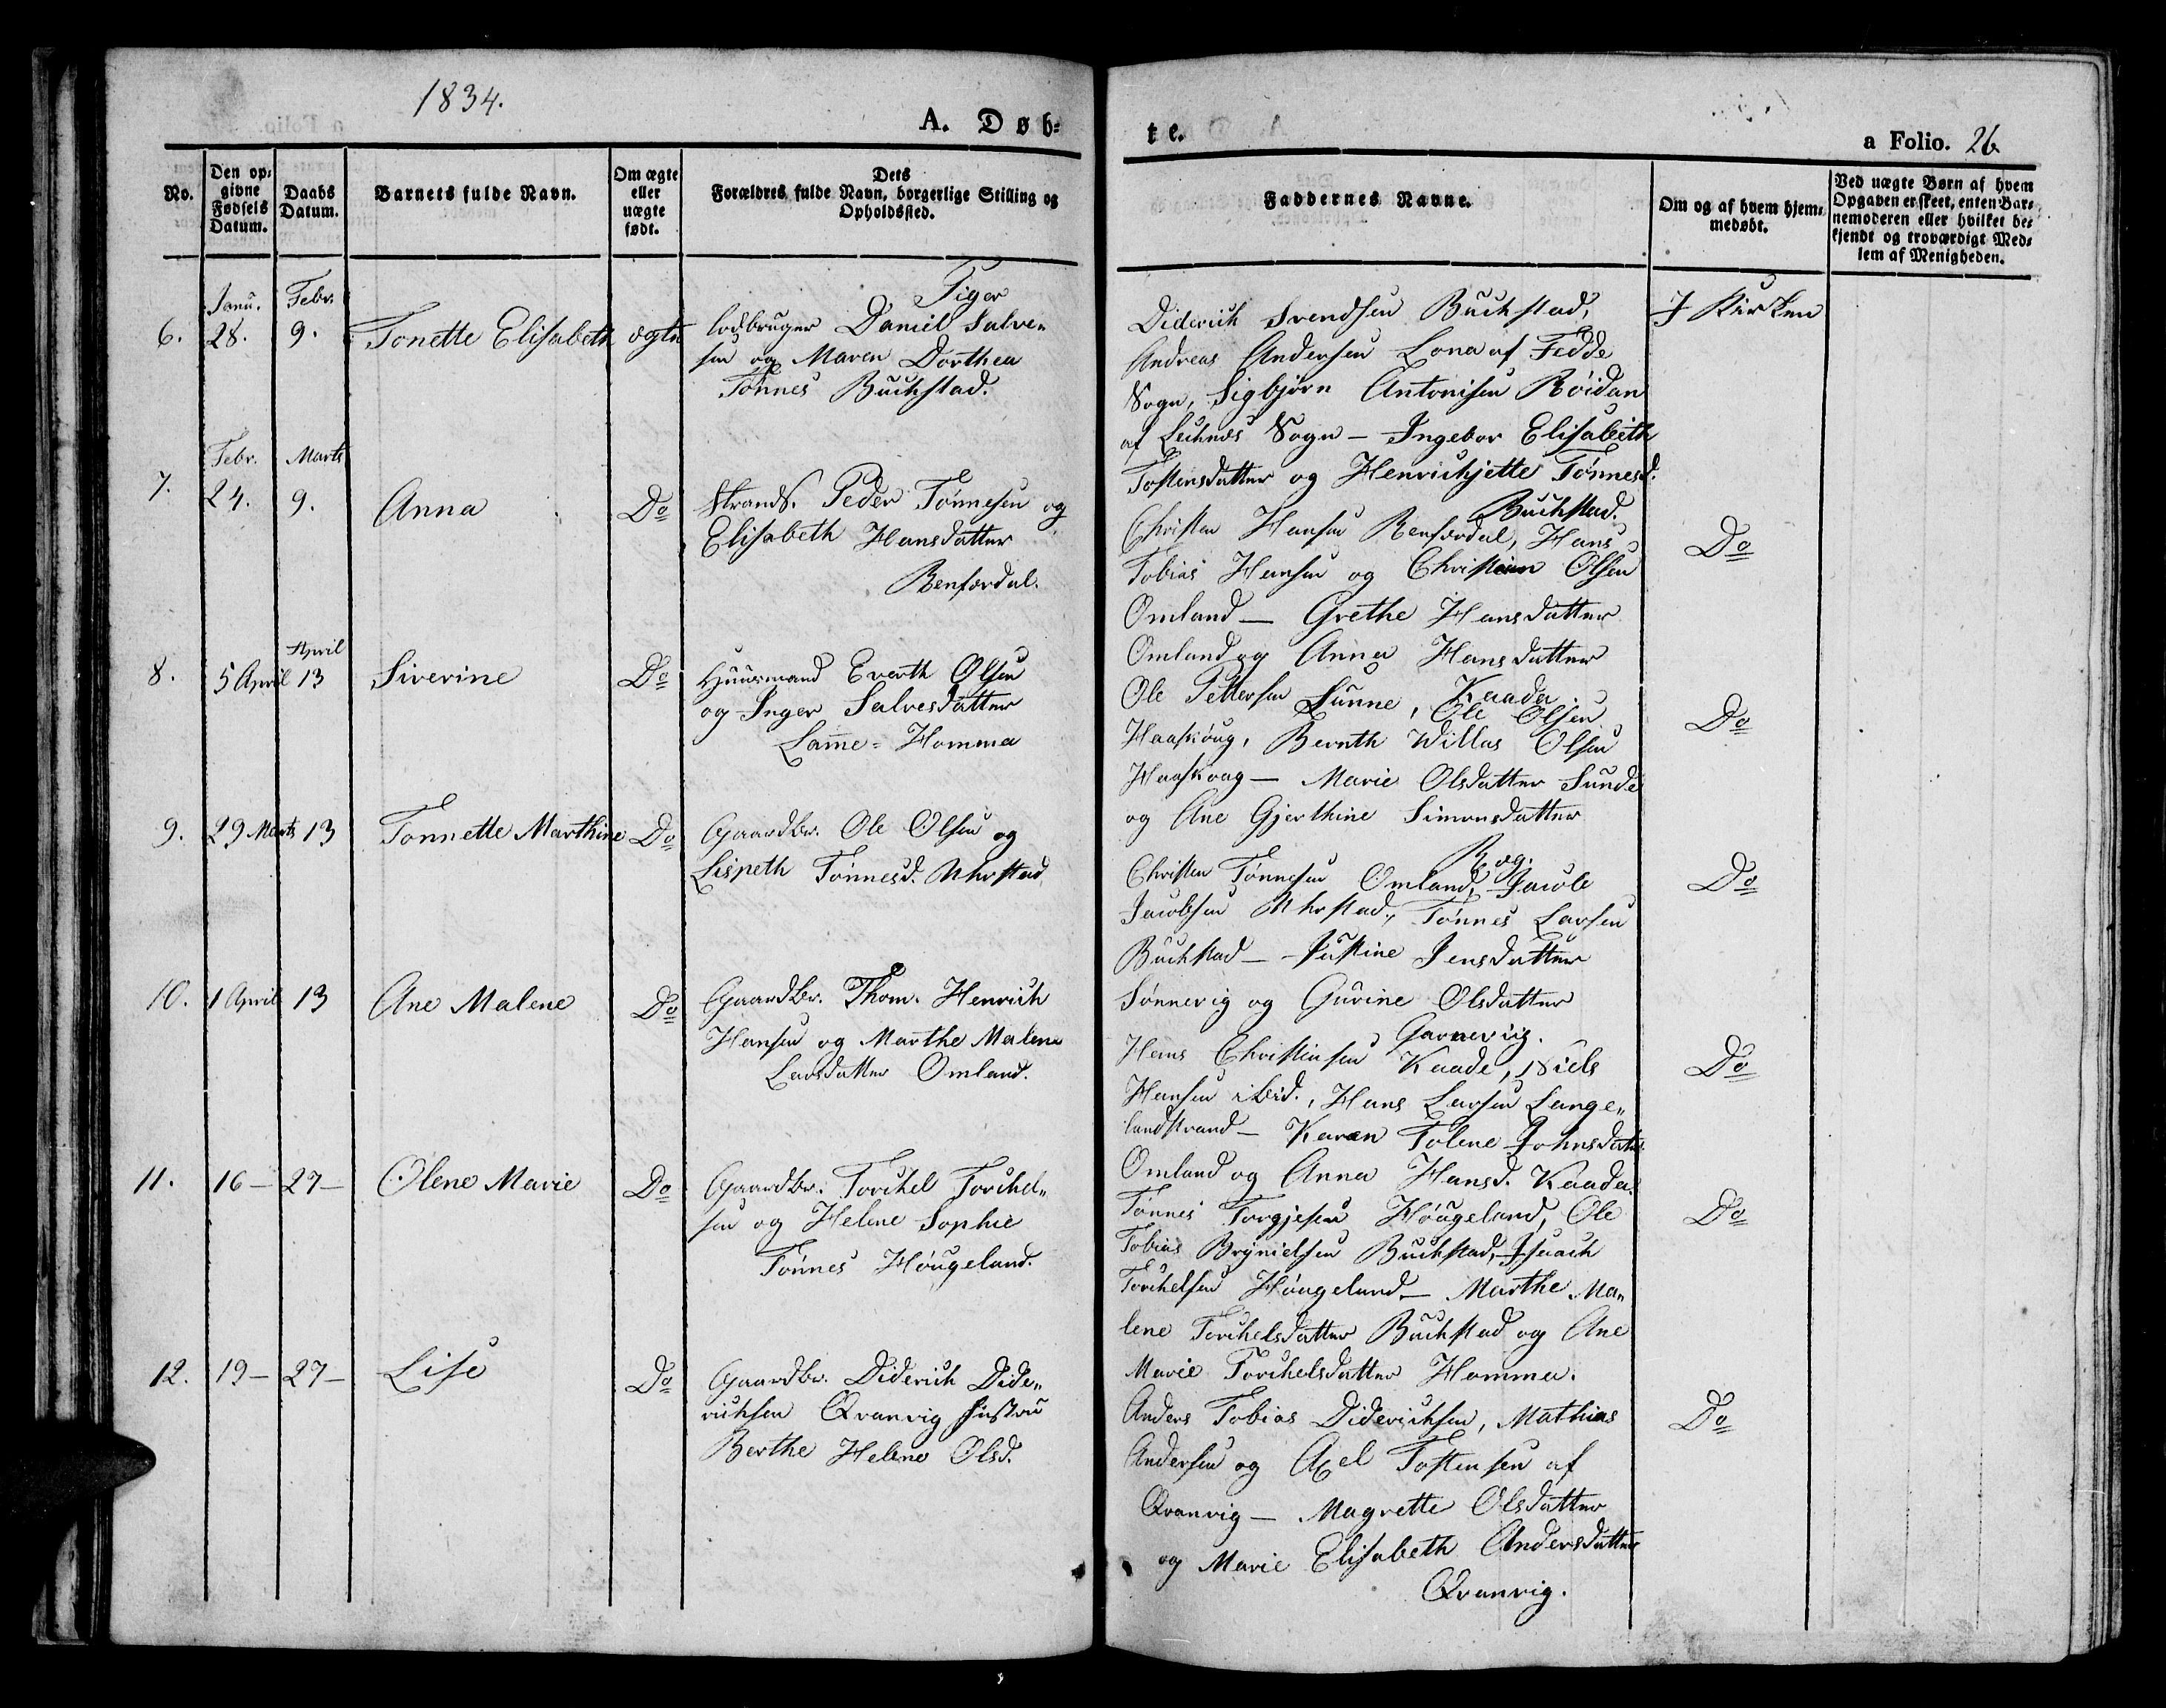 1834.
A. Døb-
te.
a Folio. 26
No.
Den op-
givne
Fødsels
Datum.
Daabs
Datum.
Barnets fulde Navn.
Om ægte
eller
uægte
født.
Dets
Forældres fulde Navn, borgerlige Stilling og
Opholdssted.
Faddernes Navne.
Om og af hvem hjem-
medøbt.
Ved uægte Børn af hvem
Opgaven er skeet, enten Bar-
nemoderen eller hvilket be-
kjendt og troværdigt Med-
lem af Menigheden.
Janu. Febr.
6. 28. 9. Tonette Elisabeth ægte
Tiger
lodbruger Daniel Salve-
sen og Maren Dorthea
Tønnes Buchstad.
Diderich Svendsen Buchstad,
Andreas Andersen Lona af Fedde
Sogn, Sigbjørn Antonisen Röidan
af Lechnæs Sogn - Ingebor Elisabeth
Tostensdatter og Henrichjette Tønnesd.
Buchstad.
I Kirken
Febr. Marts
7. 24. 9. Anna Do
Strands. Peder Tønnesen og
Elisabeth Hansdatter
Renfordal.
Christen Hansen Renfordal, Hans
Tobias Hansen og Christian Olsen
Omland - Grethe Hansdatter
Omland og Anna Hansdatter
Kaada
Do
April
8. 5 April 13 Siverine Do
Huusmand Everth Olsen
og Inger Salvesdatter
Lamme- Homma
Ole Pettersen Sunne, Ole Olsen
Haaskoug, Bernth Willas Olsen
Haaskoug - Marie Olsdatter Sunde
og Ane Gjerthine Simonsdatter
Do
9. 29 Marts 13 Tonnette Marthine Do
Gaardbr. Ole Olsen og
Lispeth Tønnesd. Uhrstad
Christen Tønnesen Omland, Jacob
Jacobsen Uhrstad, Tønnes Larsen
Buchstad - Justine Jensdatter
Sønnevig og Gurine Olsdatter
Garnevig.
Do
10. 1 April 13 Ane Malene Do
Gaardbr. Thom. Henrich
Hansen og Marthe Malene
Larsdatter Omland.
Hans Christensen Kaade, Niels
Hansen ibid., Hans Larsen Lange-
landstrand - Karen Tolene Johnsdatter
Omland og Anna Hansd. Kaada.
Do
11. 16 - 27 - Olene Marie Do
Gaardbr. Torchel Torchel-
sen og Helene Sophie
Tønnes Høugeland.
Tønnes Torgjesen Høugeland, Ole
Tobias Brynielsen Buchstad, Isaach
Torchelsen Høugeland - Marthe Ma-
lene Torchelsdatter Buchstad og Ane
Marie Torchelsdatter Homma.
Do
12. 19 - 27 - Lise Do
Gaardbr. Diderich Dide-
richsen Qvanvig Hustru
Berthe Helene Olsd.
Anders Tobias Diderichsen, Mathias
Andersen og Axel Tostensen af
Qvanvig - Magrette Olsdatter
og Marie Elisabeth Andersdatter
Qvanvig.
Do